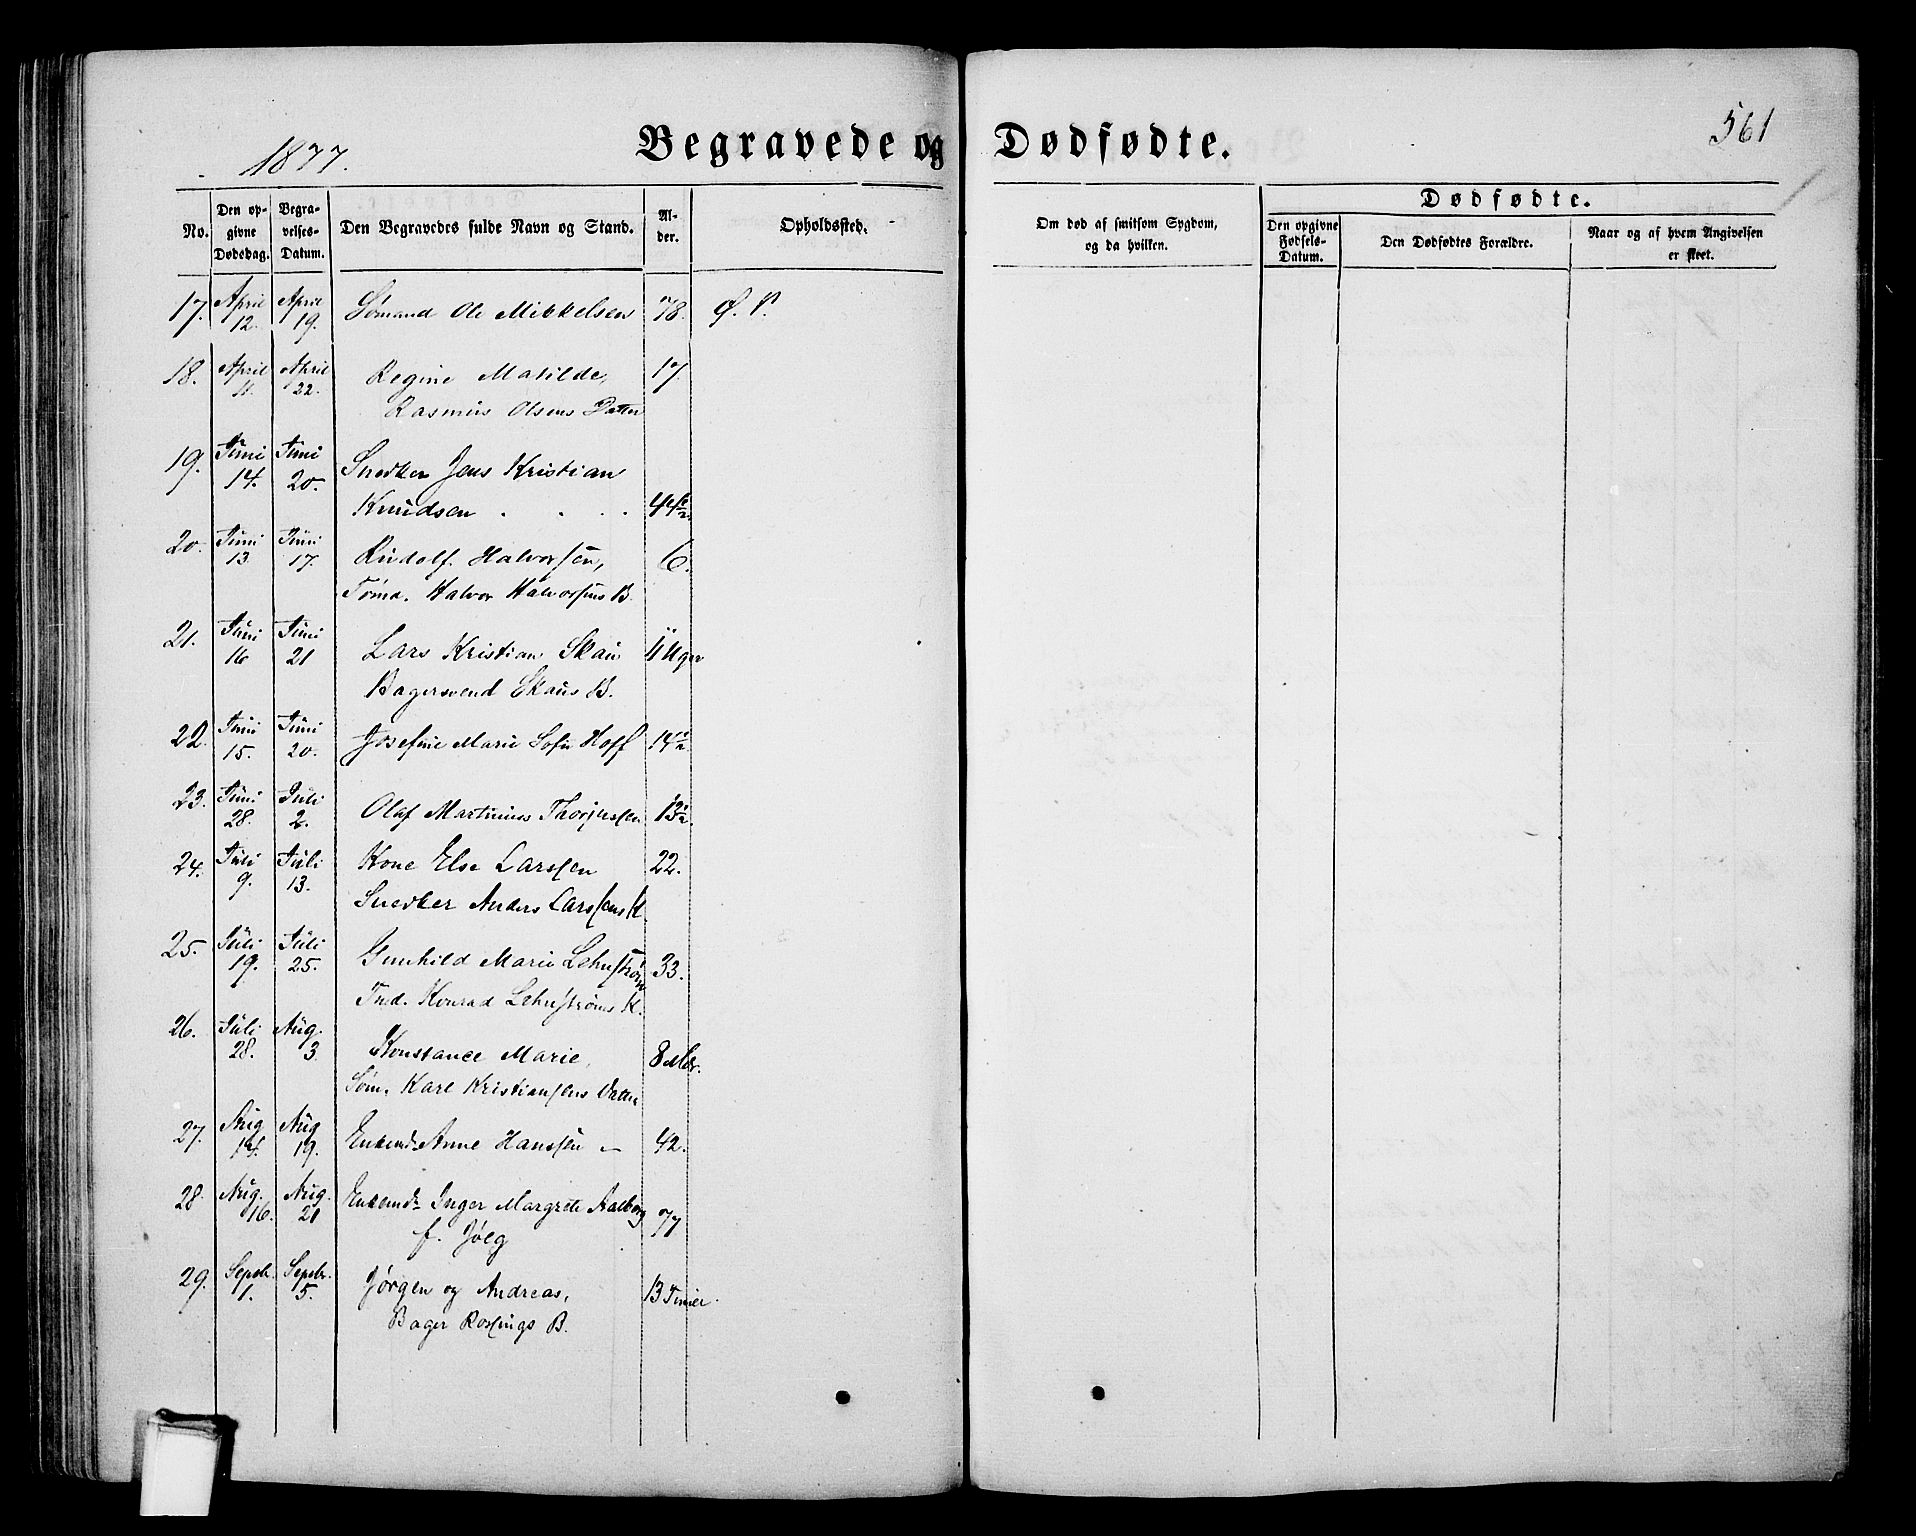 1877.
Begravede og Dødfødte.
561
No.
Den opgivne Dødsdag.
Begravelses-Datum.
Den Begravedes fulde Navn og Stand.
Alder.
Opholdssted.
Om død af smitsom Sygdom, og da hvilken.
Dødfødte.
Den opgivne Fødsels-Datum.
Den Dødfødtes Forældre.
Naar og af hvem Angivelsen er skeet.
17. April 12. April 19. Sømand Ole Mikkelsen 78. Ø. P.
18. April 11. April 22. Regine Matilde, 17.
Rasmus Olsens Datter
19. Juni 14. Juni 20. Snedker Jens Kristian
Knudsen . . . 44½
20. Juni 13. Juni 17. Rudolf Halvorsen, 6.
Tømd. Halvor Halvorsens B.
21. Juni 16 Juni 21 Lars Kristian Skau 11 Uger
Bagersvend Skaus B.
22. Juni 15. Juni 20. Josefine Marie Sofie Hoff 14½
23. Juni 28. Juli 2. Olaf Martinius Thorjussen 13½
24. Juli 9. Juli 13. Kone Else Larssen 22.
Snedker Anders Larssens K.
25. Juli 19. Juli 25. Gunhild Marie Lehnström 33.
Konrad Lehnstrøms K.
26. Juli 28. Aug. 3 Konstance Marie, 8 Mdr.
Søm. Karl Kristiansens Datter
27. Aug 14. Aug 19. Enkemd. Anne Hanssen – 42.
28. Aug. 16. Aug. 21 Enkemd. Inger Margrete Aalborg 77
f. Jølg
29. Septb. 1. Septbr. 5. Jørgen og Andreas, 13 Timer.
Bager Rossings B.